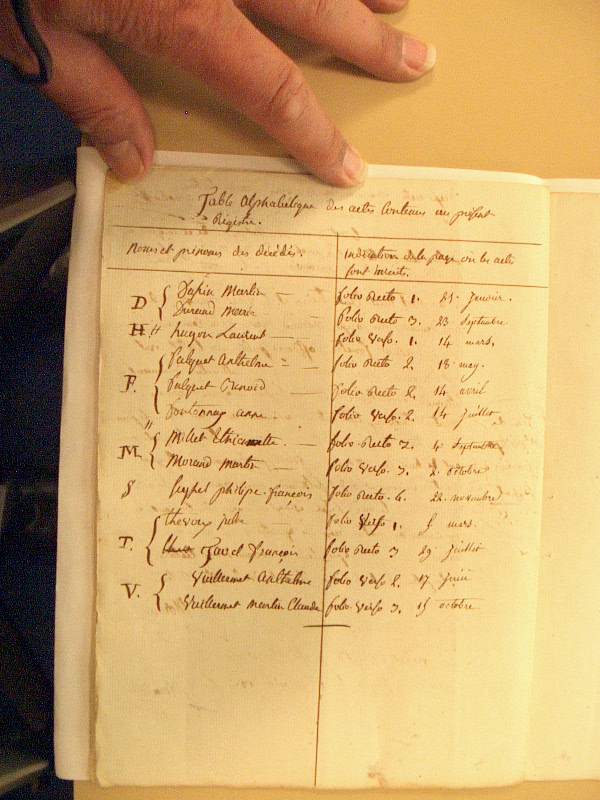 Table Alphabétique des actes Contenus au présent
Régistre.
Noms et prénoms des décédés. Indication de la page ou les actes
sont inscrits.
D Dupin Martin folio Recto 1. 21. Janvier.
Durand Marie folio Recto 3. 23 Septembre
H. hugon Laurent folio Verso. 1. 14 mars.
F. falquet Anthelme folio Recto 2. 18 may.
falquet folio Recto 2. 14 avril
fontannay anne folio Verso. 2. 14 Juillet
M. Millet folio Recto 3. 4 Septembre
Morand Martin folio Verso. 3. 2. octobre
S philippe-françois folio Recto. 4. 22. novembre
T. folio Verso 1. 5 mars.
françois folio Recto 3 29 Juillet
V. Vuillermet Anthelme folio Verso 2. 17 Juin
Vuillermet Martin Claude folio Verso 3. 15 octobre